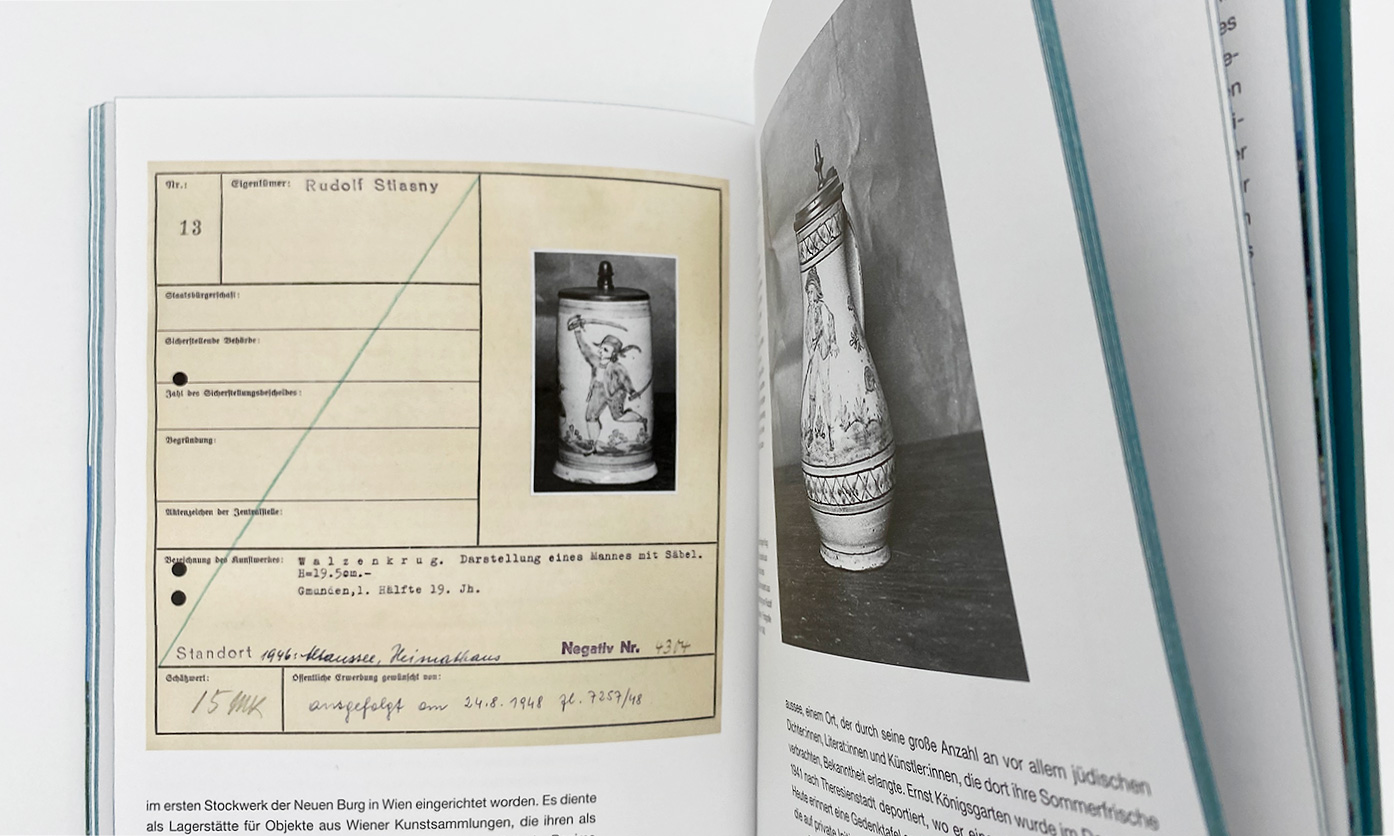 Nr.:
13
Eigentümer: Rudolf Stiasny
Staatsbürgerschaft:
Sicherstellende Behörde:
Zahl des Sicherstellungsbescheides:
Begründung:
Aktenzeichen der Zentralstelle:
Bezeichnung des Kunstwerkes: Walzenkrug. Darstellung eines Mannes mit Säbel.
H=19.5cm.-
Gmunden,1. Hälfte 19. Jh.
Standort 1946: Altaussee, Heimathaus
Negativ Nr. 4304
Schätzwert:
15 MK
Öffentliche Erwerbung gewünscht von:
ausgefolgt am 24.8.1948 Zl. 7257/48
im ersten Stockwerk der Neuen Burg in Wien eingerichtet worden. Es diente
als Lagerstätte für Objekte aus Wiener Kunstsammlungen, die ihren als
aussee, einem Ort, der durch seine große Anzahl an vor allem jüdischen
Dichter:innen, Literat:innen und Künstler:innen, die dort ihre Sommerfrische
verbrachten, Bekanntheit erlangte. Ernst Königsgarten wurde im
1941 nach Theresienstadt deportiert, wo er
Heute erinnert eine Gedenktafel
die auf private